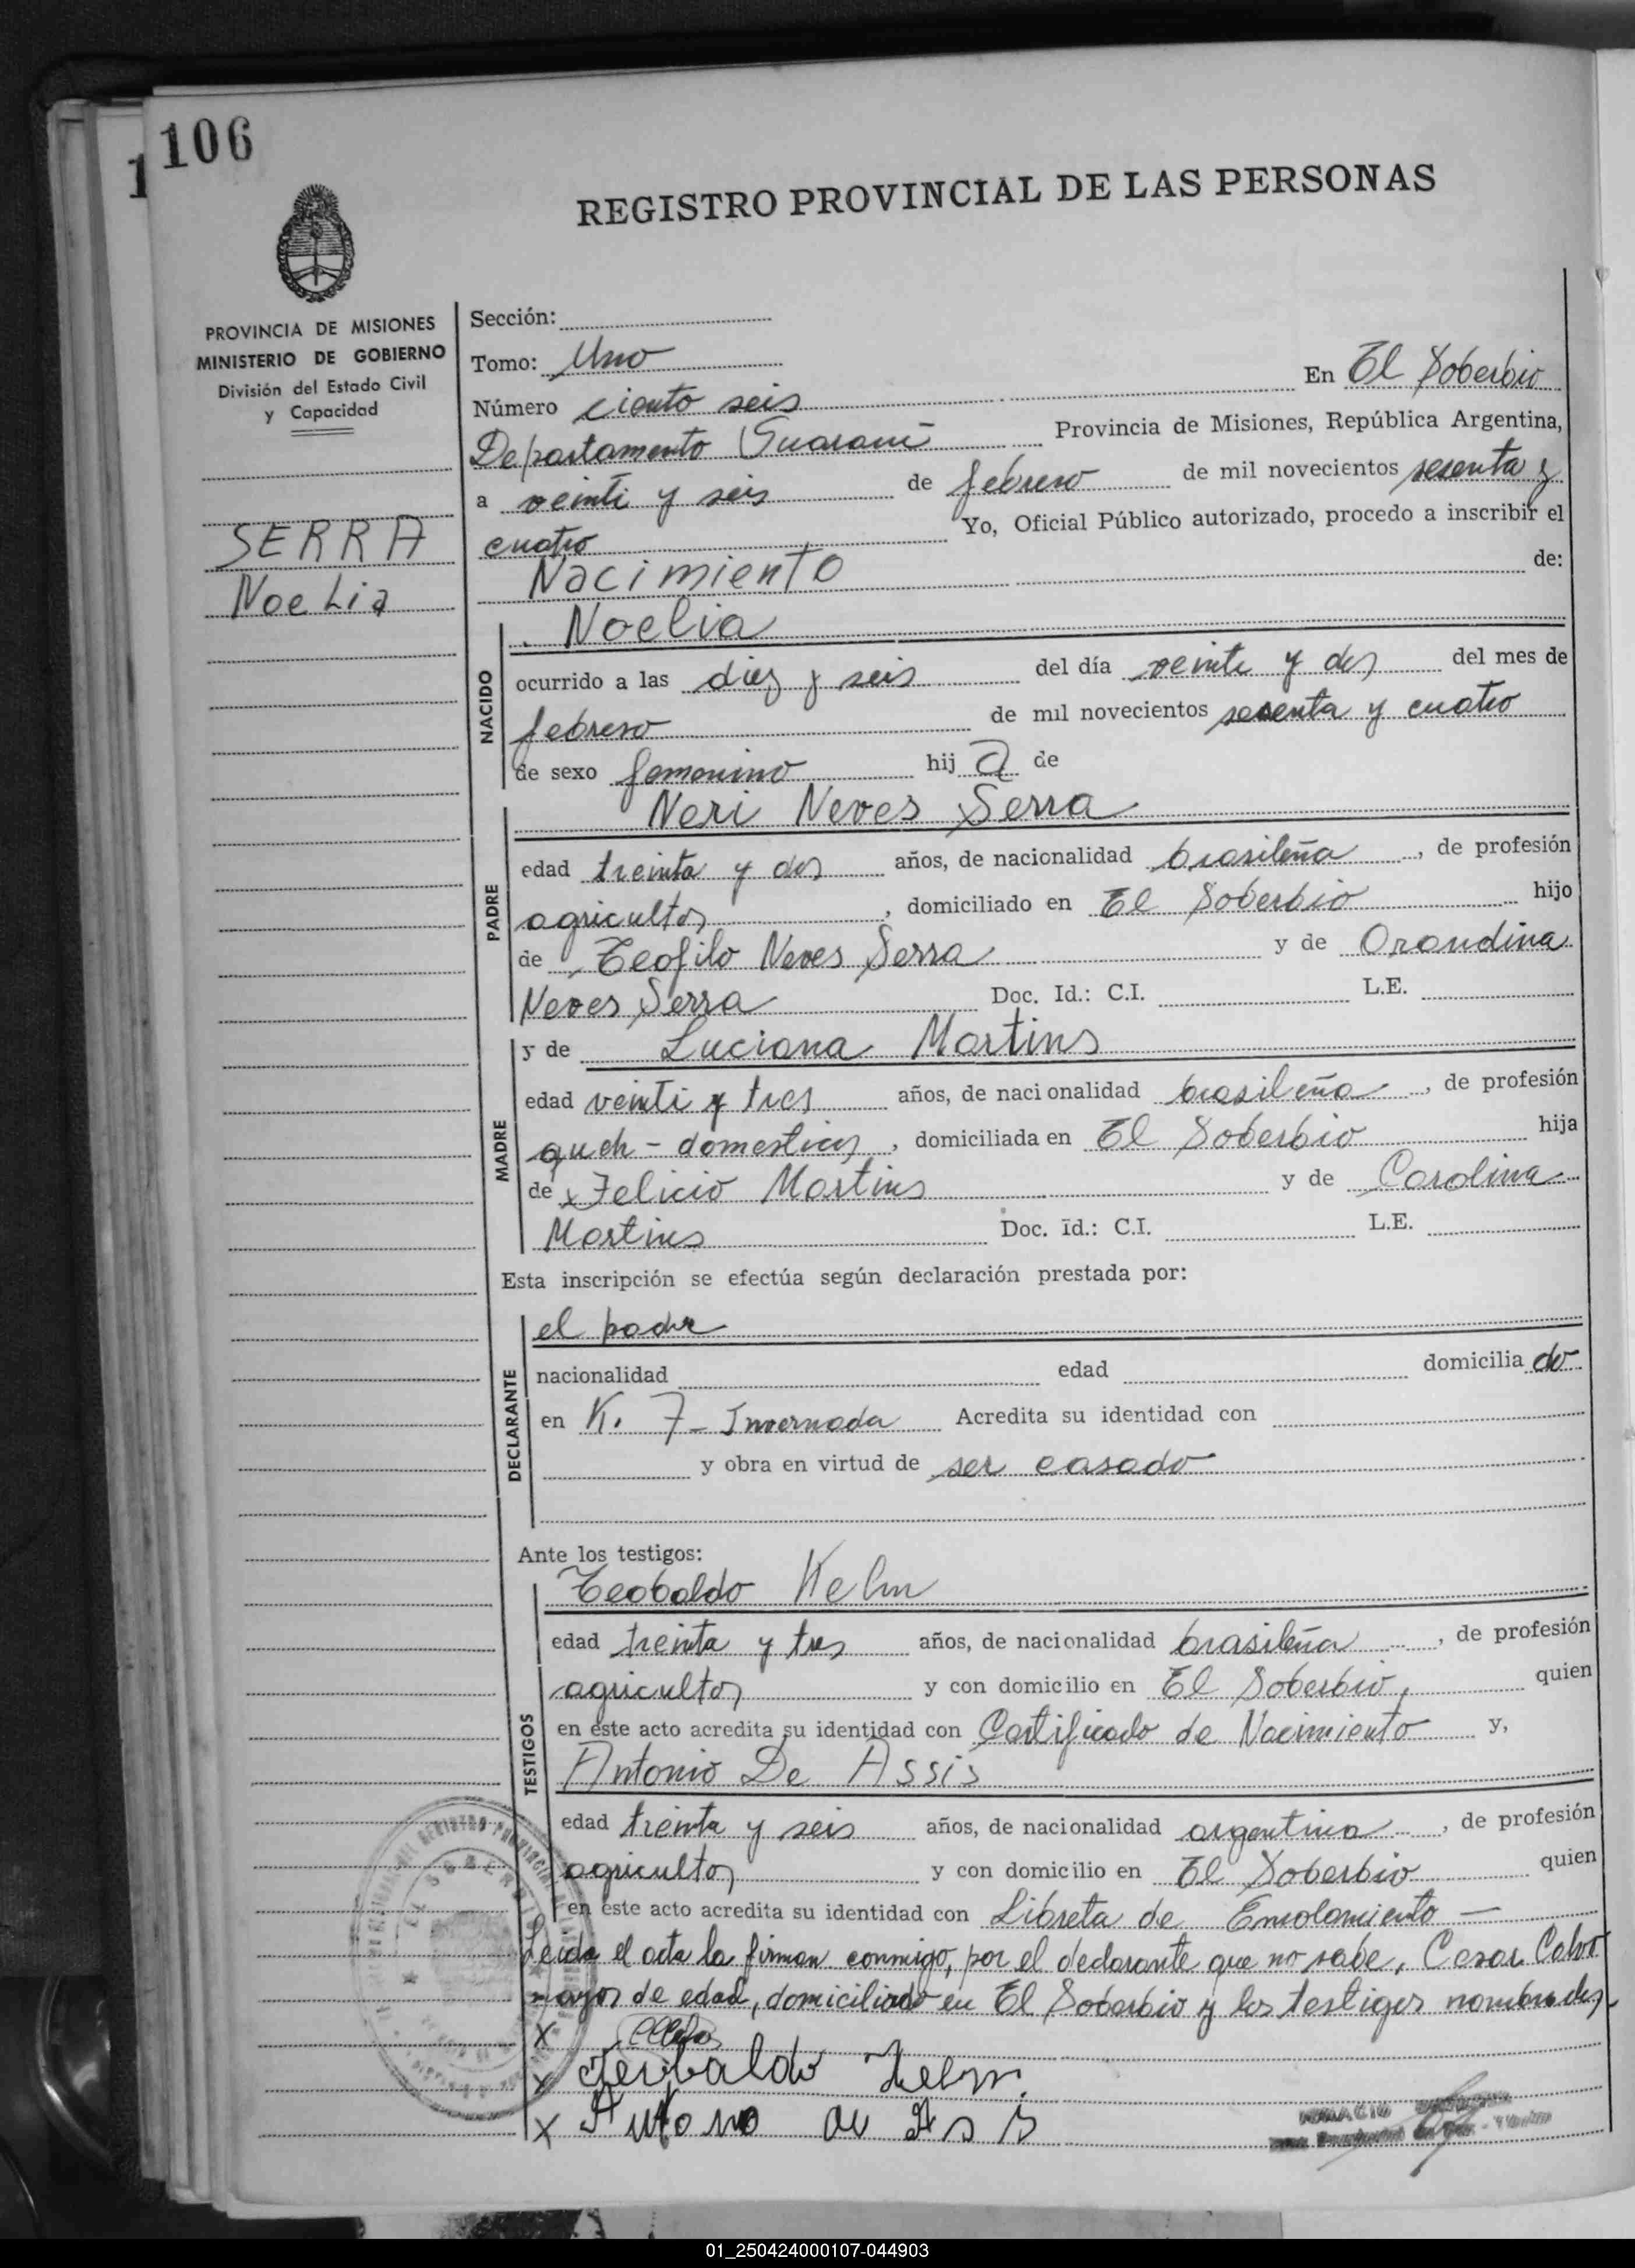 106
1
REGISTRO PROVINCIAL DE LAS PERSONAS
PROVINCIA DE MISIONES
MINISTERIO DE GOBIERNO
División del Estado Civil
y Capacidad
SERRA
Noelia
Sección:
Tomo: Uno
Número ciento seis En El Soberbio
Departamento Guaraní Provincia de Misiones, República Argentina,
a veinti y seis de febrero de mil novecientos sesenta y
cuatro Yo, Oficial Público autorizado, procedo a inscribir el
Nacimiento de:
NACIDO
Noelia
ocurrido a las diez y seis del día veinte y dos del mes de
febrero de mil novecientos sesenta y cuatro
de sexo femenino hij a de
PADRE
Neri Neves Serra
edad treinta y dos años, de nacionalidad brasileña, de profesión
agricultor, domiciliado en El Soberbio hijo
de Teofilo Neves Serra y de Orandina
Neves Serra Doc. Id.: C.I. L.E.
MADRE
y de Luciana Martins
edad veinti y tres años, de nacionalidad brasileña, de profesión
queh-domesticos, domiciliada en El Soberbio hija
de x Felicio Martins y de Carolina
Martins Doc. Id.: C.I. L.E.
Esta inscripción se efectúa según declaración prestada por:
DECLARANTE
el padre
nacionalidad edad domicilia do
en K. 7- Invernada Acredita su identidad con
y obra en virtud de ser casado
Ante los testigos:
TESTIGOS
Teobaldo Helm
edad treinta y tres años, de nacionalidad brasileña, de profesión
agricultor y con domicilio en El Soberbio, quien
en este acto acredita su identidad con Certificado de Nacimiento y,
Antonio De Assis
edad treinta y seis años, de nacionalidad argentina, de profesión
agricultor y con domicilio en El Soberbio quien
en este acto acredita su identidad con Libreta de Enrolamiento —
Leida el acta la firman conmigo, por el declarante que no sabe, Cesar Calvo
mayor de edad, domiciliado en El Soberbio y los testigos nombrados
X
x Teobaldo Helm.
X Antonio de Asis
01_250424000107-044903